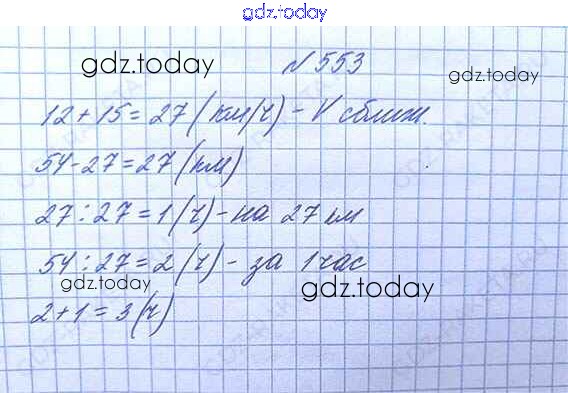 gdz.today
gdz.today
№553
gdz.today
12+15=27(км/ч)-V сближ.
54-27=27(км)
27:27=1(ч)-на 27 км
54:27=2(ч)-за 1час
gdz.today
gdz.today
2+1=3(ч)